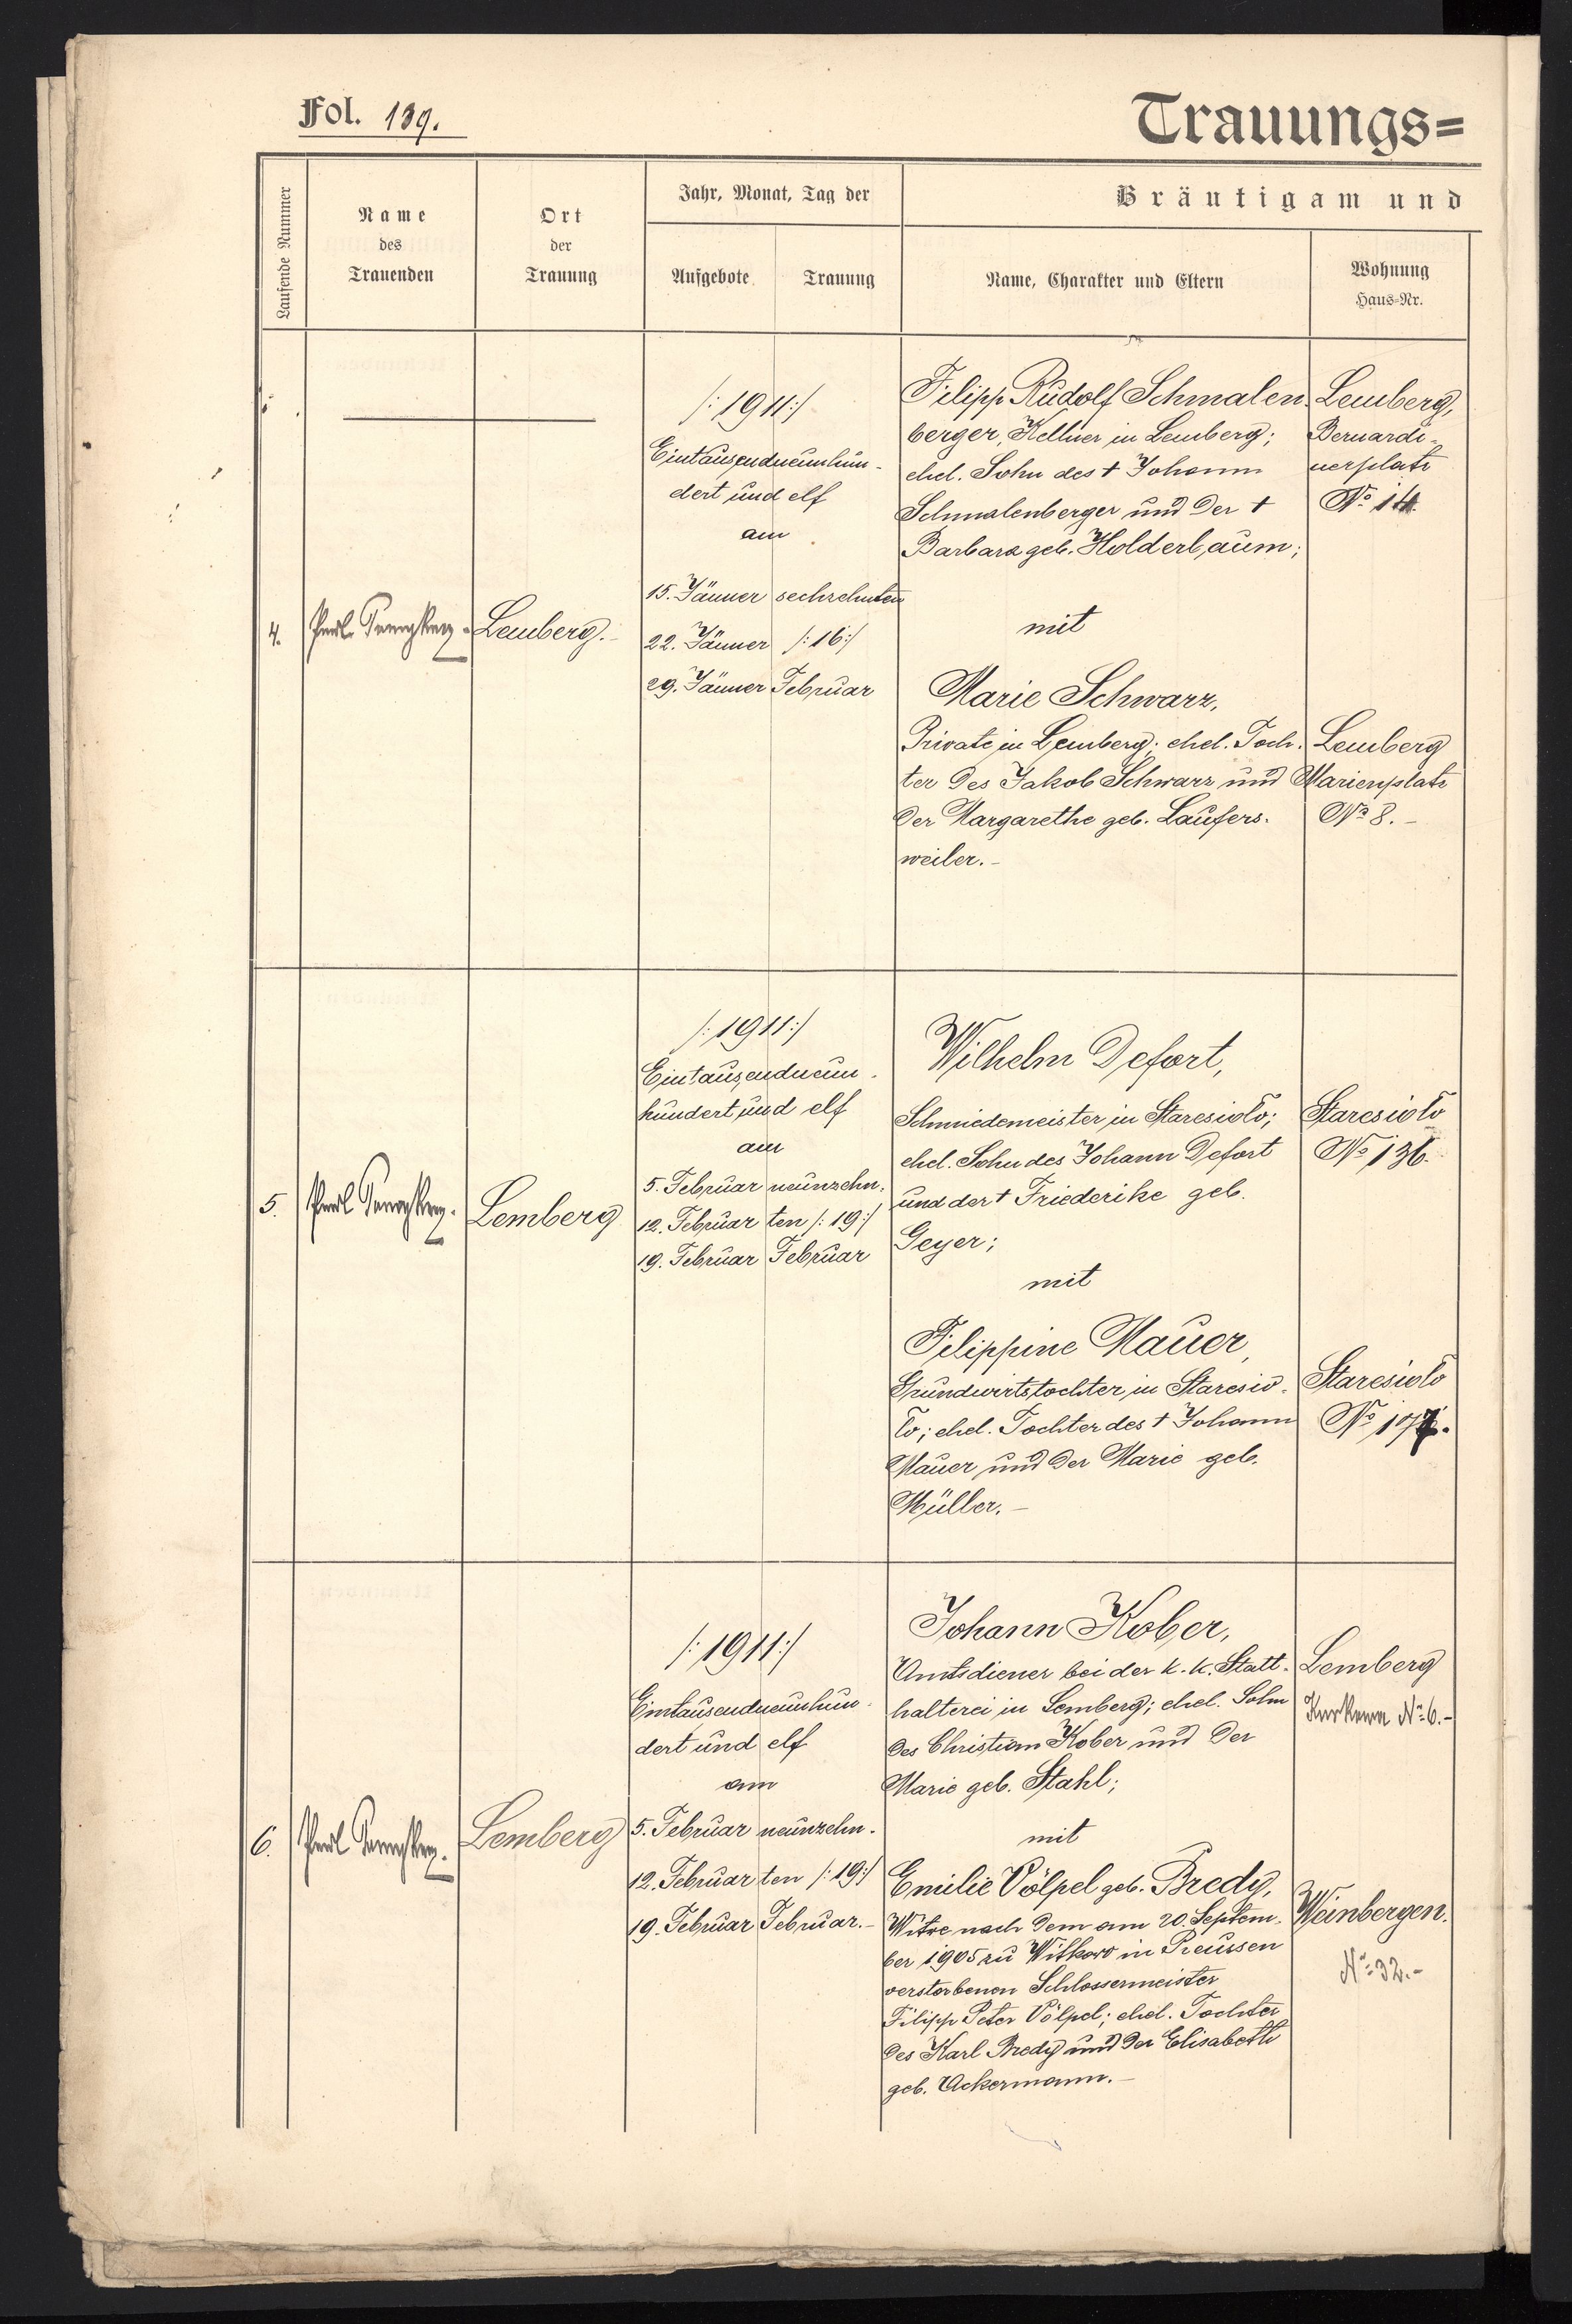 Fol. 139.
Trauungs=
Laufende Nummer
Name
des
Trauenden
Ort
der
Trauung
Jahr, Monat, Tag der
Aufgebote
Trauung
Bräutigam und
Name, Charakter und Eltern
Wohnung
Haus-Nr.
4.
Lemberg.
/: 1911 :/
Eintausendneunhun-
dert und elf
am
15. Jänner sechzehnten
22. Jänner /: 16 :/
29. Jänner Februar
Filipp Rudolf Schmalen-
berger, Kellner in Lemberg;
ehel. Sohn des † Johann
Schmalenberger und der †
Barbara geb. Holderbaum;
mit
Marie Schwarz,
Private in Lemberg; ehel. Toch-
ter des Jakob Schwarz und
der Margarethe geb. Laufers-
weiler.-
Lemberg,
Bernardi-
nerplatz
No 14.
Lemberg
Marienplatz
No 8.-
5.
Lemberg
/: 1911 :/
Eintausendneun-
hundert und elf
am
5. Februar neunzehn-
12. Februar ten /: 19 :/
19. Februar Februar
Wilhelm Defort,
Schmiedemeister in Staresioło;
ehel. Sohn des Johann Defort
und der † Friederike geb.
Geyer;
mit
Filippine Mauer,
Grundwirtstochter in Staresio-
ło; ehel. Tochter des † Johann
Mauer und der Marie geb.
Müller.-
Staresioło
No 136.
Staresioło
No 177.
6.
Lemberg
/: 1911 :/
Eintausendneunhun-
dert und elf
am
5. Februar neunzehn-
12. Februar ten /: 19 :/
19. Februar Februar.-
Johann Kober,
Amtsdiener bei der k. k. Statt-
halterei in Lemberg; ehel. Sohn
des Christian Kober und der
Marie geb. Stahl;
mit
Emilie Völpel geb. Bredy,
Witwe nach dem am 20. Septem-
ber 1905 zu Witkowo in Preussen
verstorbenen Schlossermeister
Filipp Peter Völpel; ehel. Tochter
des Karl Bredy und der Elisabeth
geb. Ackermann.-
Lemberg
No 6.-
Weinbergen.
No 32.-